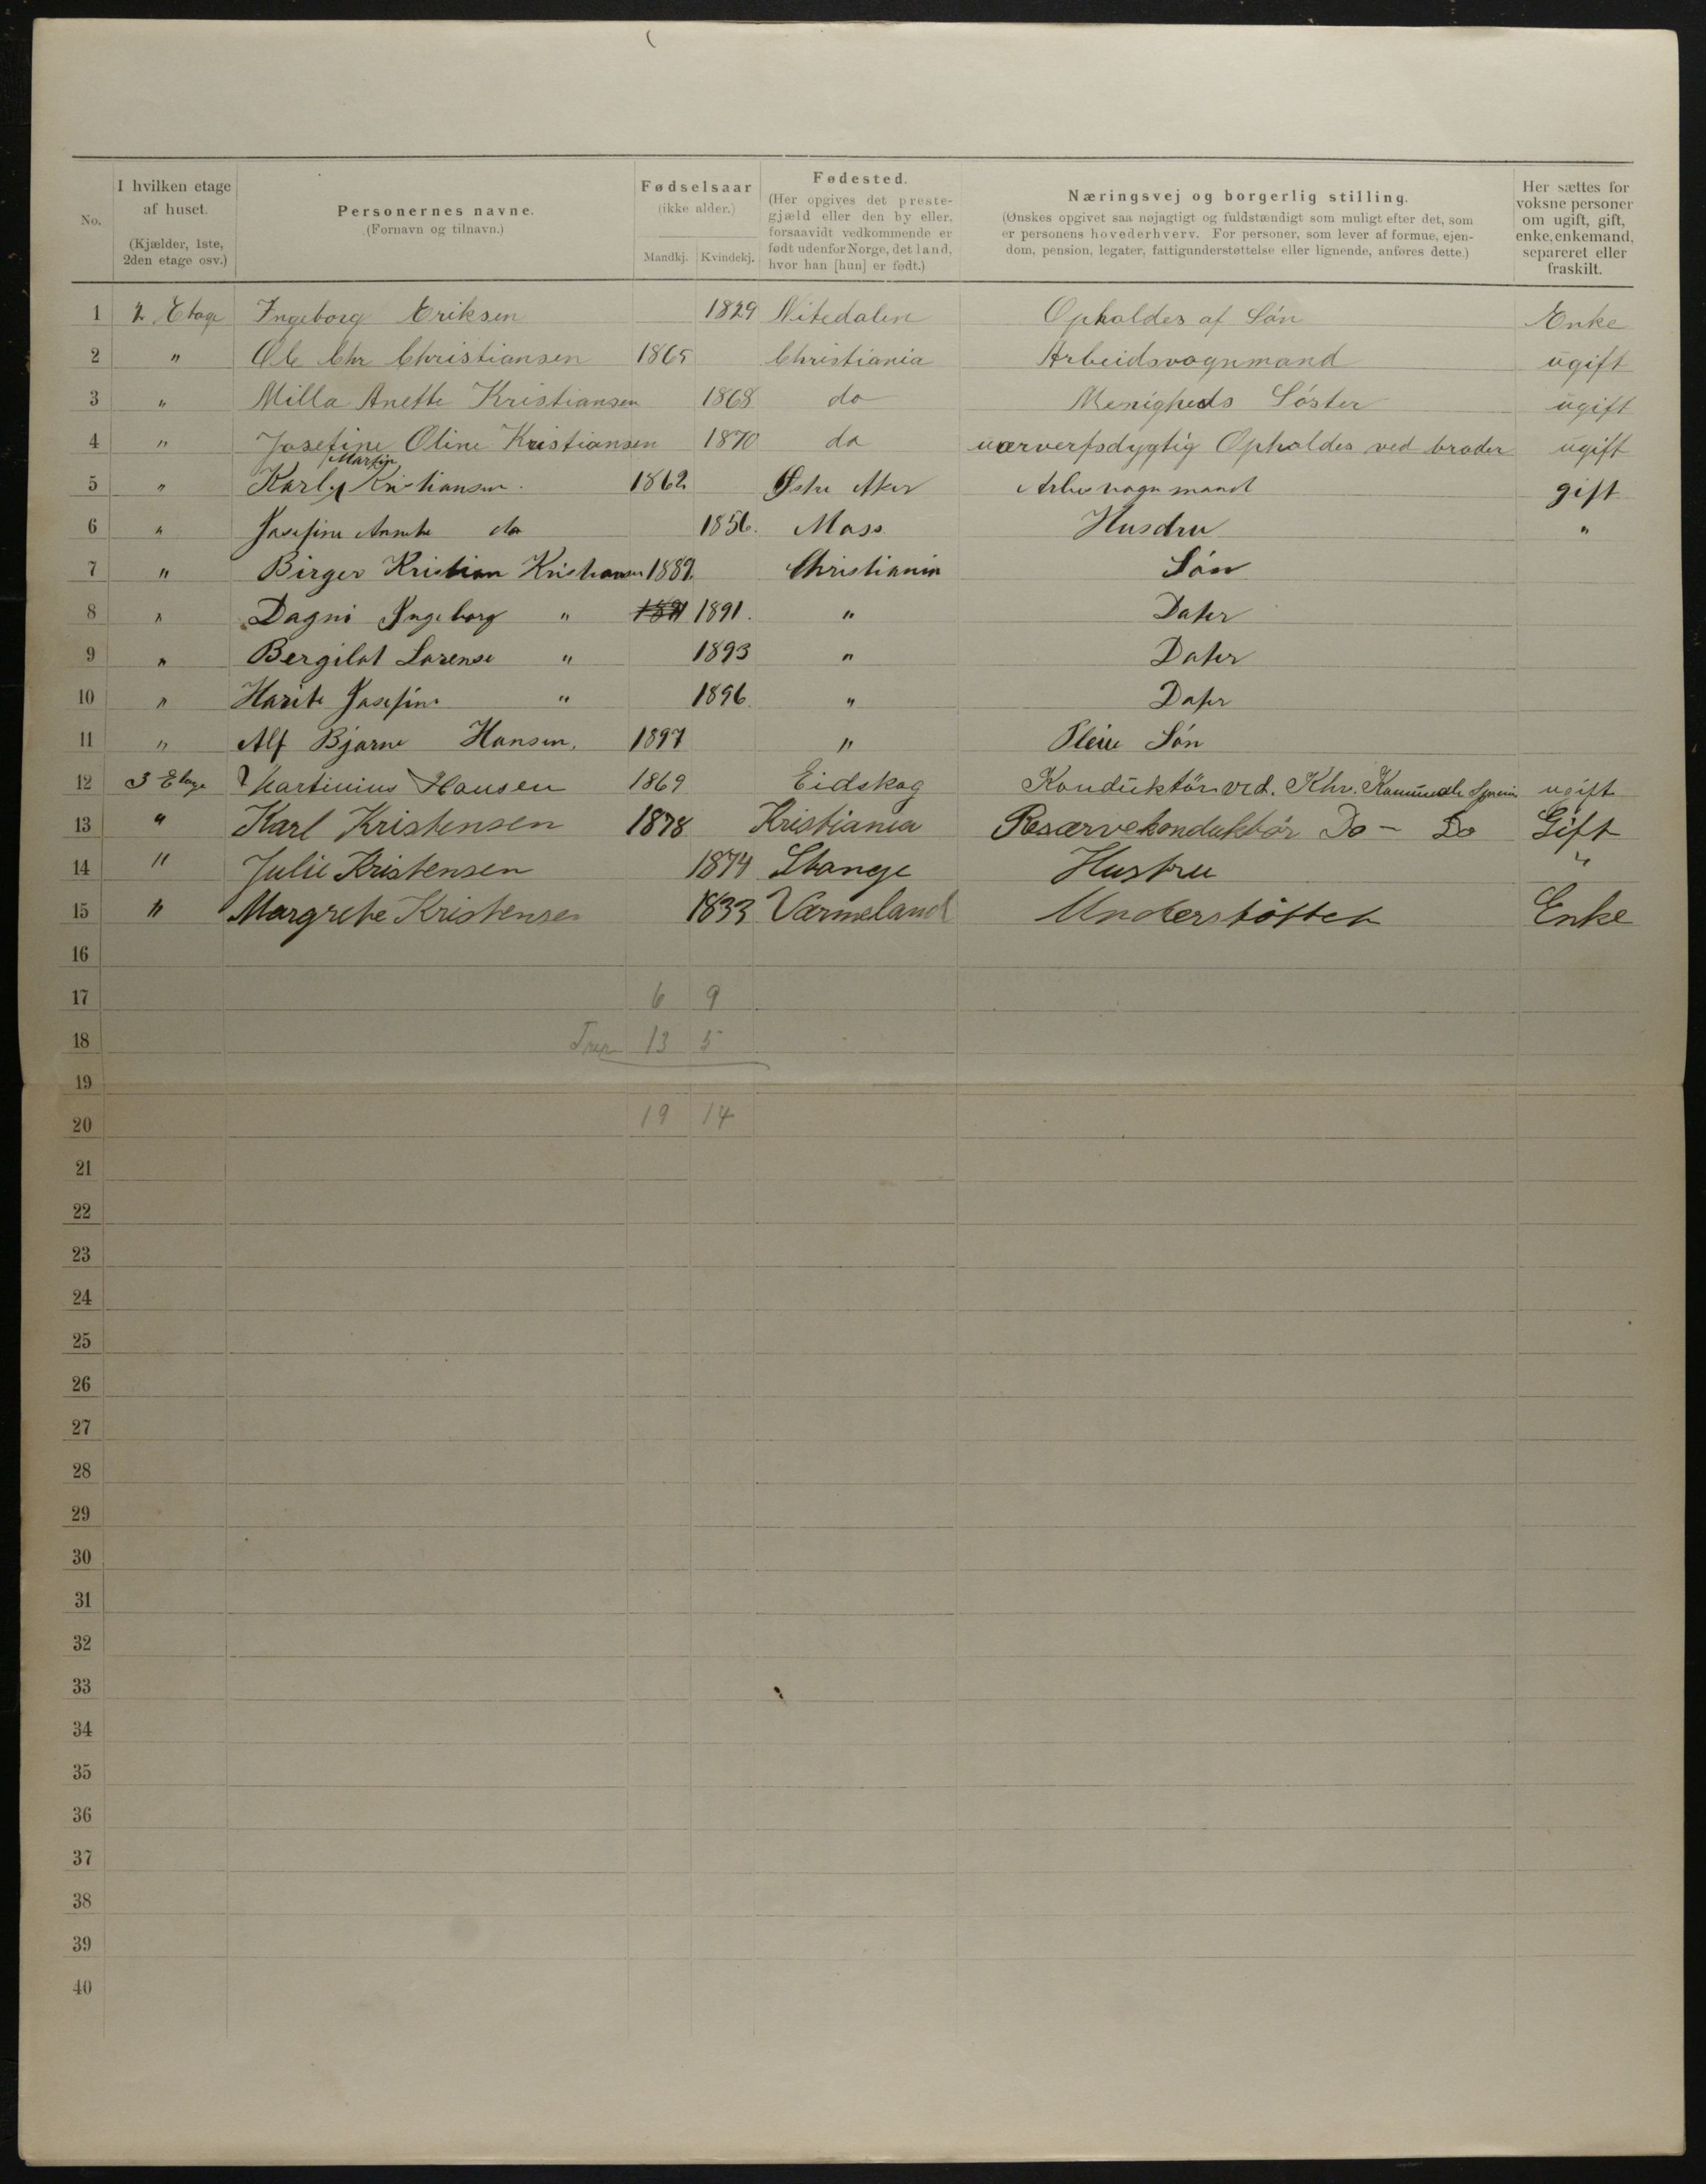 No. | I hvilken etage af huset. (Kjælder, 1ste, 2den etage osv.) | Personernes navne. (Fornavn og tilnavn.) | Fødselsaar (ikke alder.) Mandkj. Kvindekj. | Fødested. (Her opgives det prestegjæld eller den by eller, forsaavidt vedkommende er født udenfor Norge, det land, hvor han [hun] er født.) | Næringsvej og borgerlig stilling. (Ønskes opgivet saa nøjagtigt og fuldstændigt som muligt efter det, som er personens hovederhverv. For personer, som lever af formue, ejendom, pension, legater, fattigunderstøttelse eller lignende, anføres dette.) | Her sættes for voksne personer om ugift, gift, enke, enkemand, separeret eller fraskilt.
1 2 Etage Ingeborg Eriksen 1829 Nitedalen Opholdes af Søn Enke
2 " Ole Chr Christiansen 1865 Christiania Arbeidsvognmand ugift
3 " Milla Anette Kristiansen 1868 do Menigheds Søster ugift
4 " Josefine Oline Kristiansen 1870 do uærverfsdygtig Opholdes ved broder ugift
5 " Karl Martin Kristiansen. 1862 Østre Aker gift
6 " Josefine Annette do 1856. Moss Husdru "
7 " Birger Kristian Kristiansen 1889. Christiania Søn
8 " Dagni Ingeborg " 1891 1891. " Dater
9 " Bergilot Lorense " 1893 " Dater
10 " Josefine " 1896. " Dater
11 " Alf Bjarne Hansen, 1897 " Pleie Søn
12 3 Etage Martinius Hansen 1869 Eidskog Konduktör ved. Khr. ugift
13 " Karl Kristensen 1878 Kristiania Resærvekonduktør Do - Do Gift
14 " Julie Kristensen 1874 Stange Hustru "
15 " Margrete Kristensen 1833 Værmeland Understøttet Enke
16
17 6 9
18 13 5
19
20 19 14
21
22
23
24
25
26
27
28
29
30
31
32
33
34
35
36
37
38
39
40